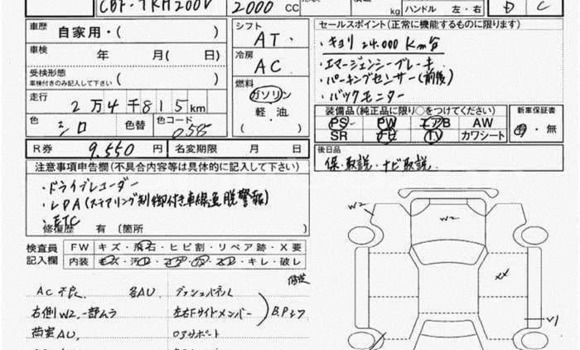 CBF-TRH200V 2000 CC kg ハンドル 左・右 D C
車歴 自家用・( )
シフト AT・
セールスポイント(正常に機能するものに限ります)
・キョリ 24.000 Km台
・エマージェンシーブレーキ
・パーキングセンサー(前後)
・バックモニター
車検 年 月( 日)
冷房 AC・
受検形態 車検付きのみ記入して下さい ( )
燃料 ガソリン 軽油 ( )
走行 2万4千815km
色 シロ 色替 色コード
装備品(純正品に限り○をつけてください)
PS PW エアB AW
SR ナビ TV カワシート
新車保証書 有・無
R券 9.550円 名変期限 年 月 日
後日品
保・取説・ナビ取説
注意事項申告欄(不具合内容等は具体的に記入して下さい)
・ドライブレコーダー
・LDA(ステアリング制御付き車線逸脱警報)
・ETC
修復歴 有(箇所 )
検査員記入欄 FW キズ・飛石・ヒビ割・リペア跡・X要
内装 キズ・汚 キレ・破レ
AC不良 各AU
右側W2
荷室AU
左右Fサイドメンバー
ロアサポート
W2
W2
XX
V1